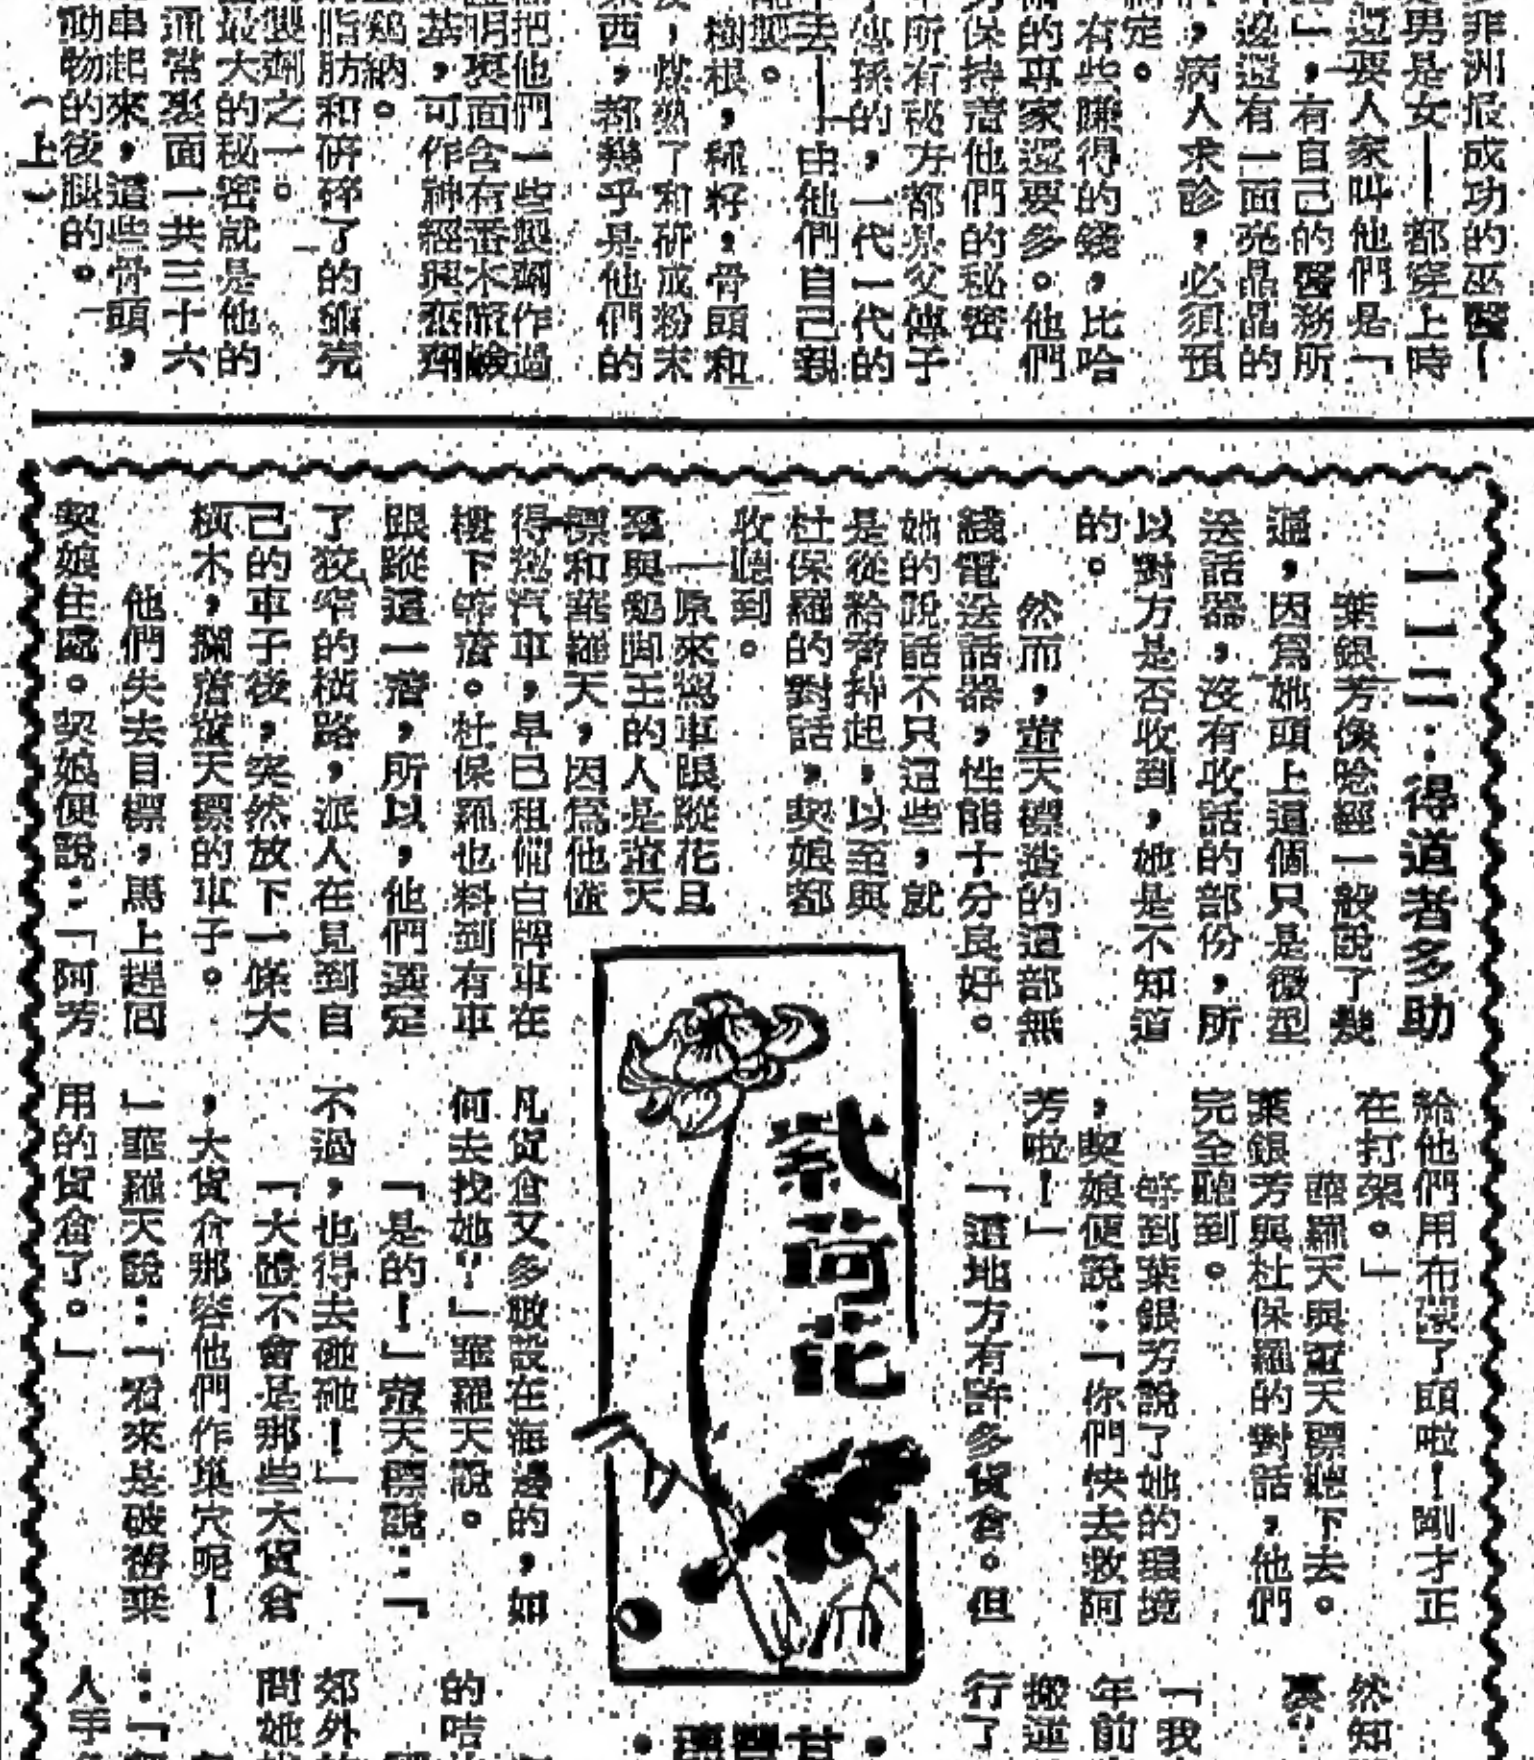 非洲最成功的巫醫
男是女——都穿上時
還要人家叫他們是「
」,有自己的醫務所
邊還有一面亮晶晶的
,病人求診,必須預
定。
有些賺得的錢,比哈
的專家還要多。他們
保持着他們的秘密
所有秘方都是父傳子
傳孫的,一代一代的
去——由他們自己親
製。
樹根,種籽,骨頭和
,煤熟了和研成粉末
西,都幾乎是他們的
把他們一些製劑作過
明裏面含有番木鼈鹼
基,可作神經興奮劑
脂肪和研碎了的蛋壳
製劑之一。
最大的秘密就是他的
通常裏面一共三十六
串起來,這些骨頭,
動物的後腿的。
(上)
一一二:得道者多助
葉銀芳像唸經一般說了幾
遍,因爲她頭上這個只是微型
送話器,沒有收話的部份,所
以對方是否收到,她是不知道
的。
然而,董天標造的這部無
綫電送話器,性能十分良好。
她的說話不只這些,就
是從給脊抬起,以至與
杜保羅的對話,契娘都
收聽到。
原來駕車跟蹤花旦
羣與勉脚王的人是董天
標和華羅天,因爲他僅
得幾汽車,早已租備白牌車在
樓下等着。杜保羅也料到有車
跟蹤這一着,所以,他們選定
了狡窄的橫路,派人在見到自
己的車子後,突然放下一條大
橫木,攔着董天標的車子。
他們失去目標,馬上趕回
契娘住處。契娘便說:「阿芳
給他們用布蒙了頭啦!剛才正
在打架。」
華羅天與董天標聽下去。
葉銀芳與杜保羅的對話,他們
完全聽到。
等到葉銀芳說了她的環境
,契娘便說:「你們快去救阿
芳啦!」
「這地方有許多貨倉。但
凡貨倉又多數設在海邊的,如
何去找她!」華羅天說。
「是的!」董天標說:「
不過,也得去碰碰!」
「大證不會是那些大貨倉
,大貨倉那容他們作巢穴呢!
」華羅天說:「看來是破舊棄
用的貨倉了。」
紫荷花
然知
「我
年前
搬運
行了
的咭
郊外
問她
人手